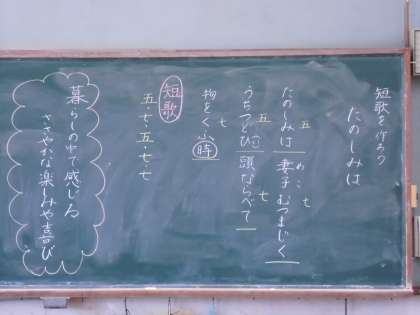 短歌を作ろう
たのしみは
たのしみは妻子むつまじく
めこ
五
七
うちつどひ頭ならべて
五
七
物をくふ時
七
短歌
五・七・五・七・七
暮らしの中で感じる
ささやかな楽しみや喜び